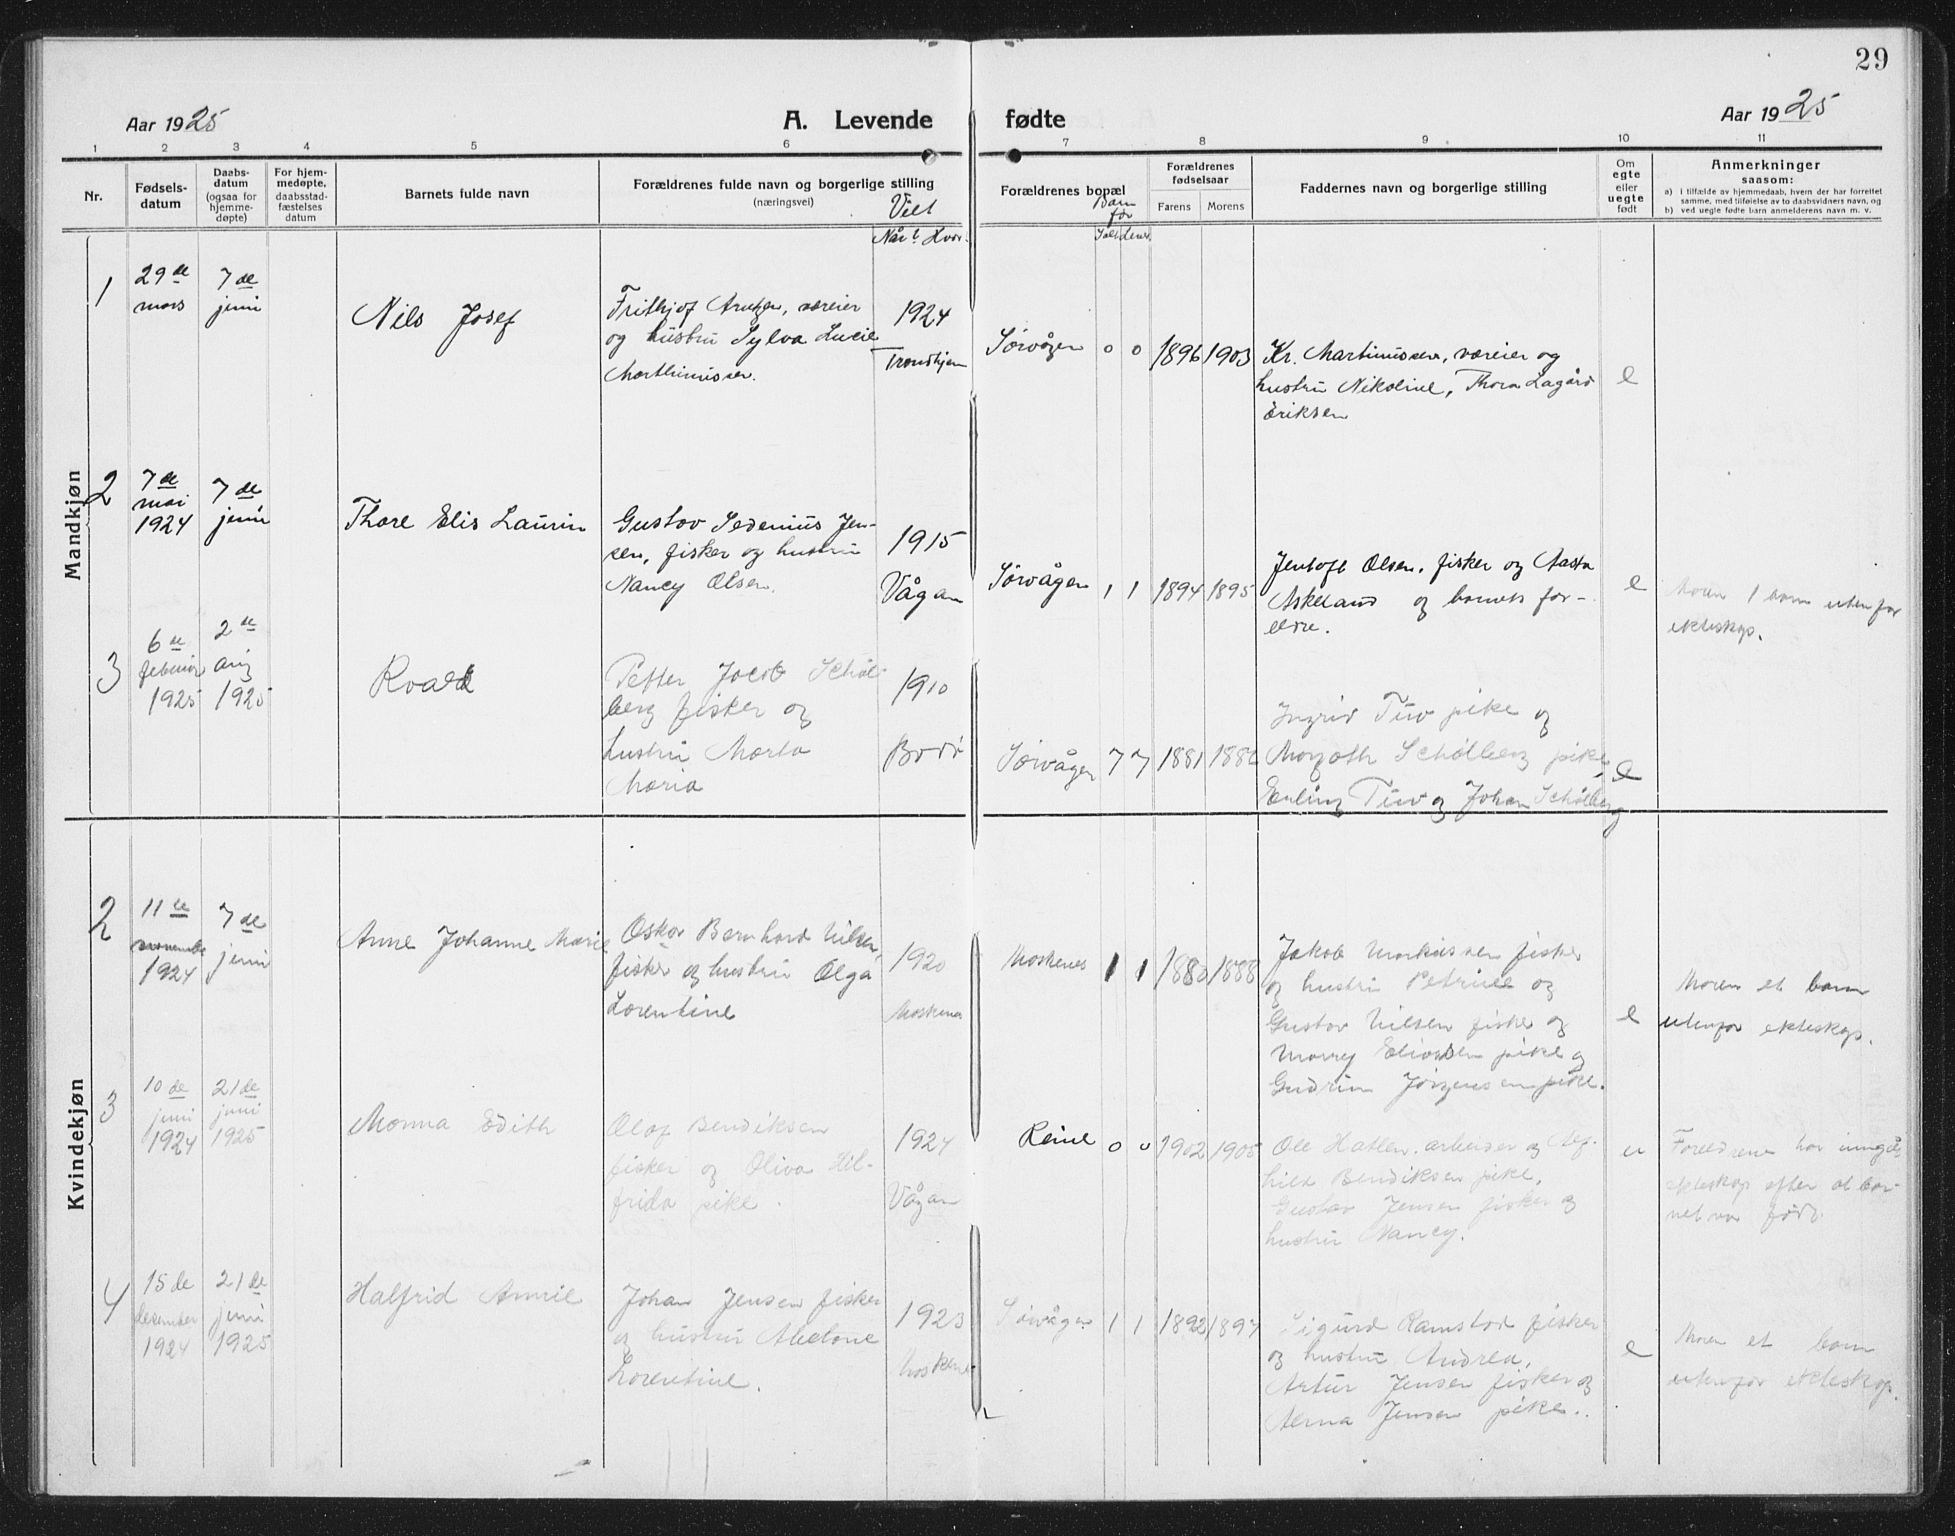 29
Aar 1925
A. Levende
fødte
Aar 1925
1 2 3 4 5 6 7 8 9 10 11
Nr.
Fødsels-
datum
Daabs-
datum
(ogsaa for
hjemme-
døpte)
For hjem-
medøpte,
daabsstad-
fæstelses
datum
Barnets fulde navn
Forældrenes fulde navn og borgerlige stilling
(næringsvei)
Viet
Når? Hvor?
Forældrenes bopæl
Barn
før
Forældrenes
fødselsaar
Farens Morens
Faddernes navn og borgerlige stilling
Om
egte
eller
uegte
født
Anmerkninger
saasom:
a) i tilfælde av hjemmedaab, hvem der har forrettet
samme, med tilføielse av to daabsvidners navn, og
b) ved uegte fødte barn anmelderens navn m. v.
Mandkjøn
1
29de
mars
7de
juni
Nils Josef
Frithjof Arntzen, væreier
og hustru Sylva Lucie
Marthinussen.
1924
Trondhjem
Sørvågen 0 0 1896 1903
Kr. Martinussen, væreier og
hustru Nikoline, Thora Lagård
Eriksen
e
2
7de
mai
1924
7de
juni
Thore Elis Laurin
Gustav Sedenius Jen-
sen, fisker og hustru
Nancy Olsen.
1915
Vågan
Sørvågen 1 1 1894 1895
Jentoft Olsen, fisker og Aasta
Askeland og barnets for-
eldre.
e
Moren 1 barn utenfor
ekteskap.
3
6te
februar
1925
2de
aug
1925
Roald
Petter Jacob Schøl-
berg fisker og
hustru Marta
Maria
1910
Bodø
Sørvågen 7 7 1881 1882
Ingrid Tuv pike og
Margoth Schølberg pike,
Erling Tuv og Johan Schølberg
e
Kvindekjøn
2
11te
november
1924
7de
juni
Anne Johanne Marie
Oskar Bernhard Nilsen,
fisker og hustru Olga
Lorentine
1920
Moskenes
Moskenes 1 1 1880 1888
Jakob Markussen fisker
og hustru Petrine og
Gustav Nilsen fisker og
Marry Eliassen pike og
Gudrun Jörgensen pike.
e
Moren et barn
utenfor ekteskap.
3
10de
juni
1924
21de
juni
1925
Monna Edith
Olaf Bendiksen
fisker og Oliva Hil-
frida pike.
1924
Vågan
Reine 0 0 1902 1905
Ole Hatlen, arbeider og Alf-
hild Bendiksen pike,
Gustav Jensen fisker og
hustru Nancy.
u
Foreldrene har inngåt
ekteskap efter at bar-
net var född.
4
15de
desember
1924
21de
juni
1925
Halfrid Annie
Johan Jensen fisker
og hustru Abelone
Lorentine.
1923
Moskenes
Sørvågen 1 1 1892 1897
Sigurd Ramstad fisker
og hustru Andrea,
Artur Jensen fisker og
Aerna Jensen pike.
e
Moren et barn
utenfor ekteskap.